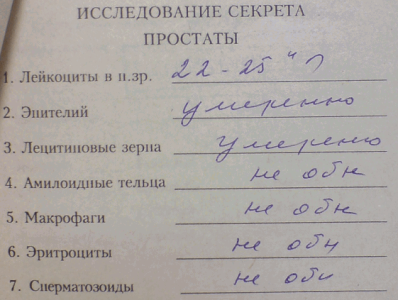 ИССЛЕДОВАНИЕ СЕКРЕТА
ПРОСТАТЫ
1. Лейкоциты в п.зр. 22 - 25
2. Эпителий умеренно
3. Лецитиновые зерна умеренно
4. Амилоидные тельца не обн
5. Макрофаги не обн
6. Эритроциты не обн
7. Сперматозоиды не обн